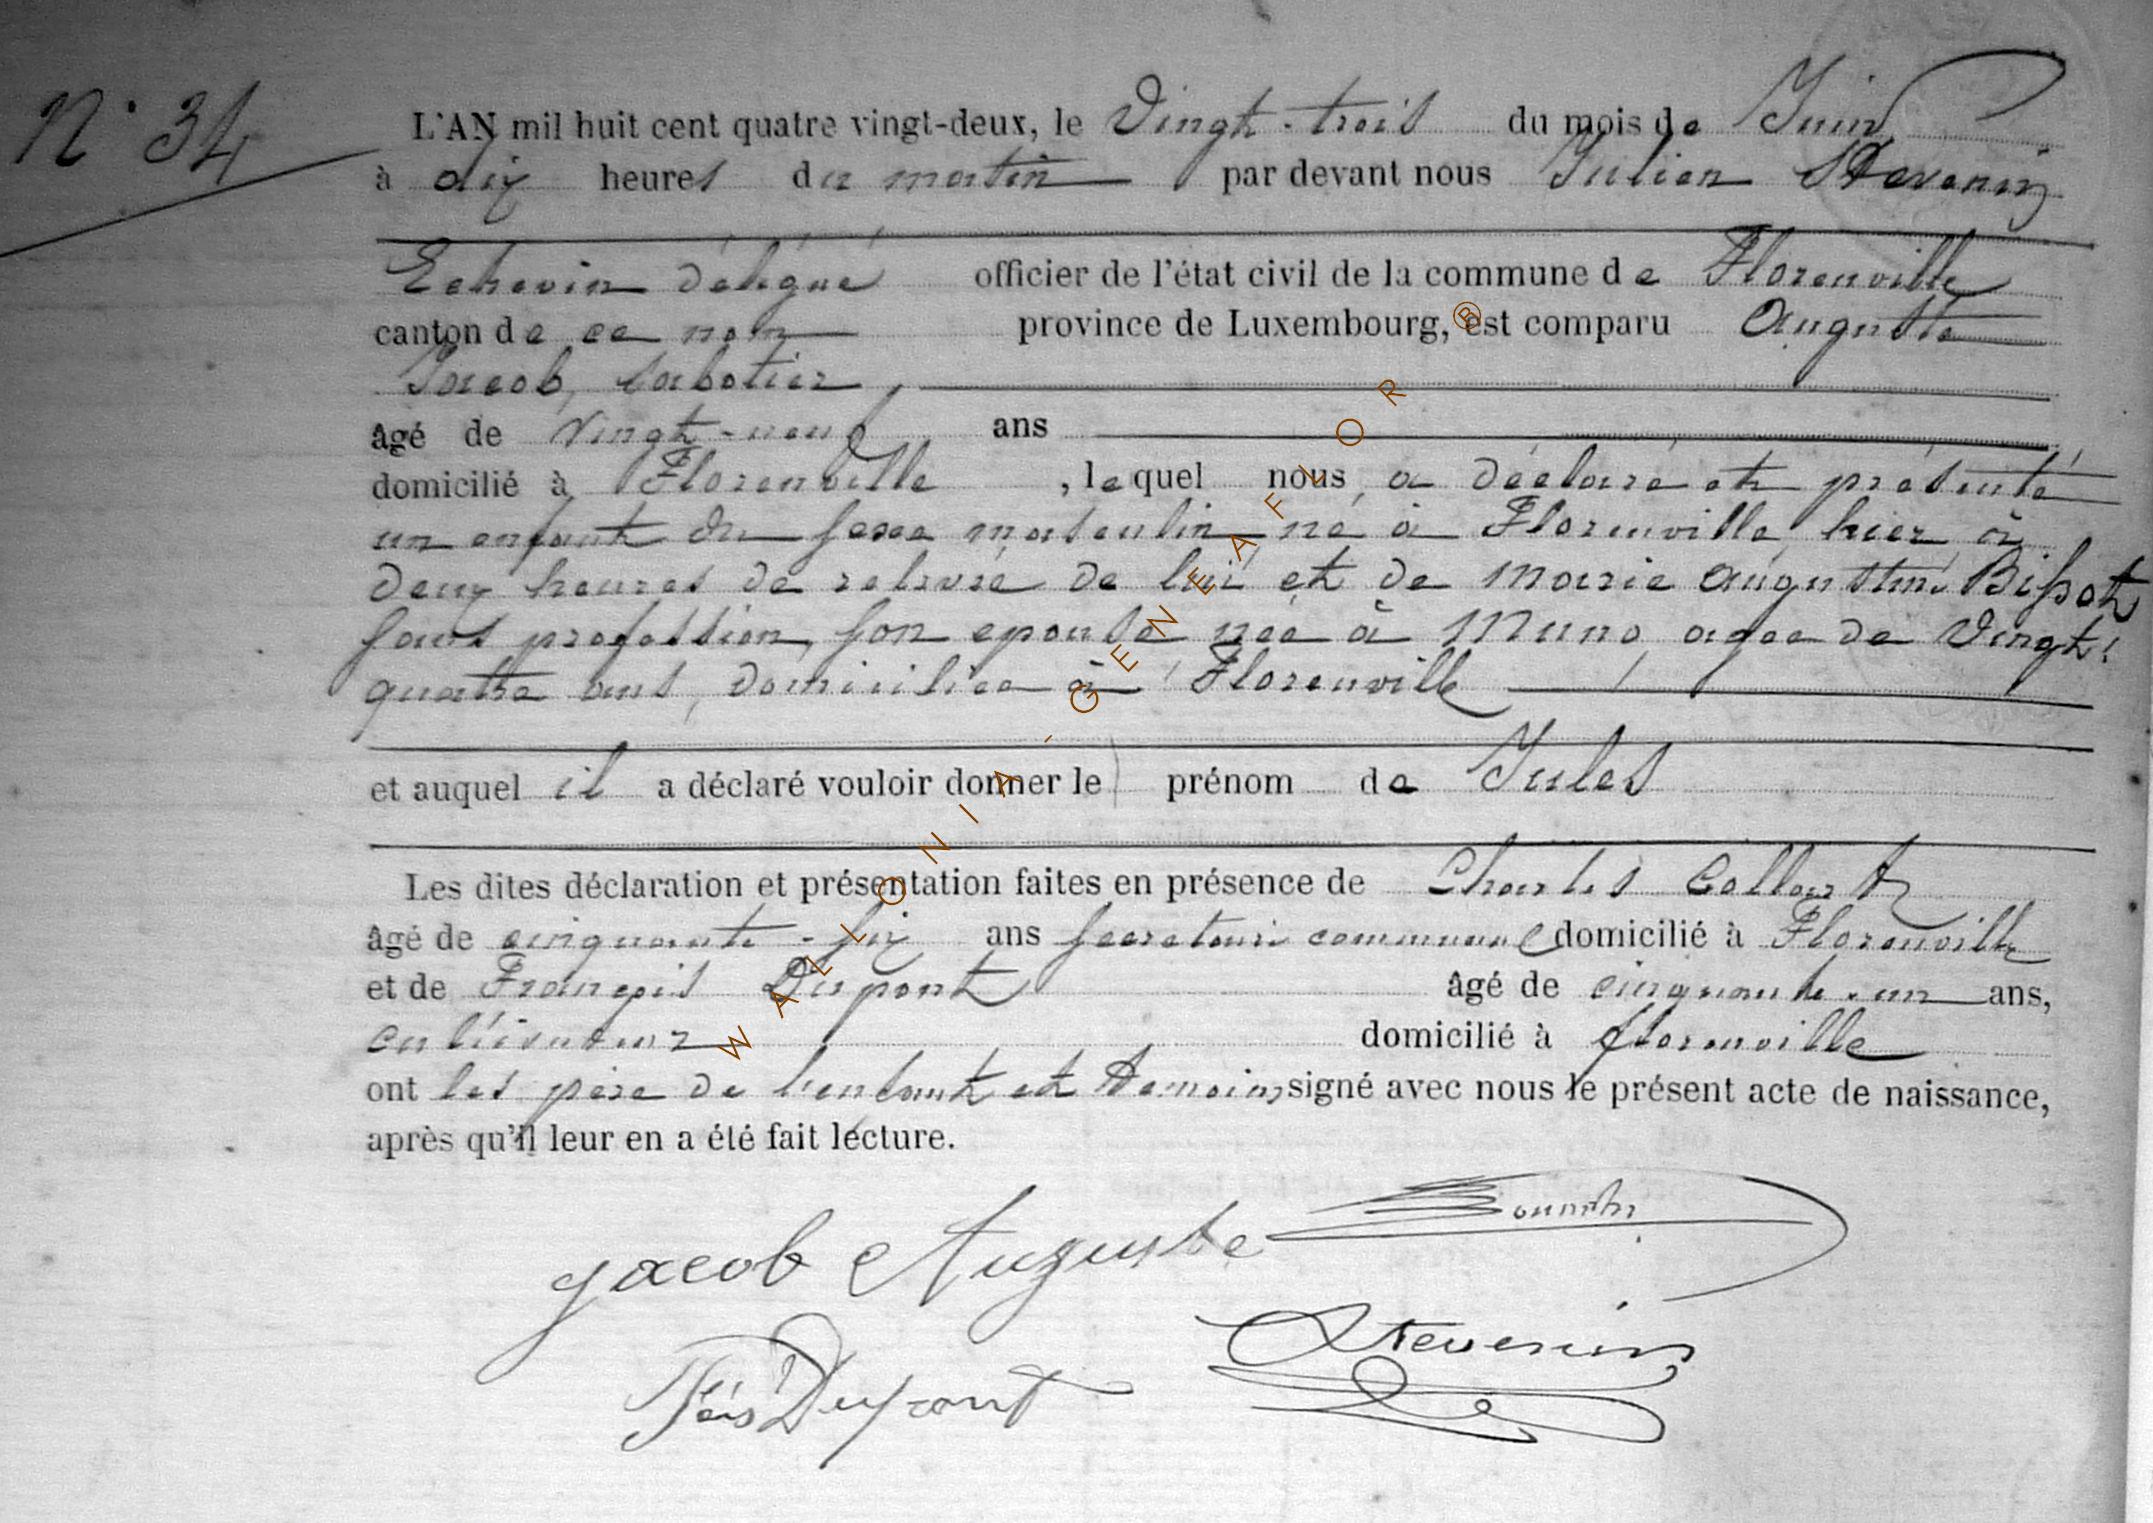 N° 34
L'AN mil huit cent quatre vingt-deux, le Vingt-trois du mois de Juin
à dix heures du matin par devant nous Julien Stevenin
Echevin délégué officier de l'état civil de la commune de Florenville
canton de ce nom province de Luxembourg, est comparu Auguste
Jacob, sabotier,
âgé de Vingt-neuf ans
domicilié à Florenville, lequel nous a déclaré et présenté
un enfant du sexe masculin né à Florenville, hier à
deux heures de relevée de lui et de Marie Augustine Bissot
sans profession, son épouse née à Muno, agée de Vingt
quatre ans, domiciliée à Florenville
et auquel il a déclaré vouloir donner le prénom de Jules
Les dites déclaration et présentation faites en présence de Charles Collart
âgé de cinquante-six ans secrétaire communal domicilié à Florenville
et de François Dupont âgé de cinquante-un ans,
cultivateur domicilié à florenville
ont les père de l'enfant et témoins signé avec nous le présent acte de naissance,
après qu'il leur en a été fait lecture.
Jacob Auguste
Fçois Dupont Stevenin
WALLONIA - GENEAFLOR ®